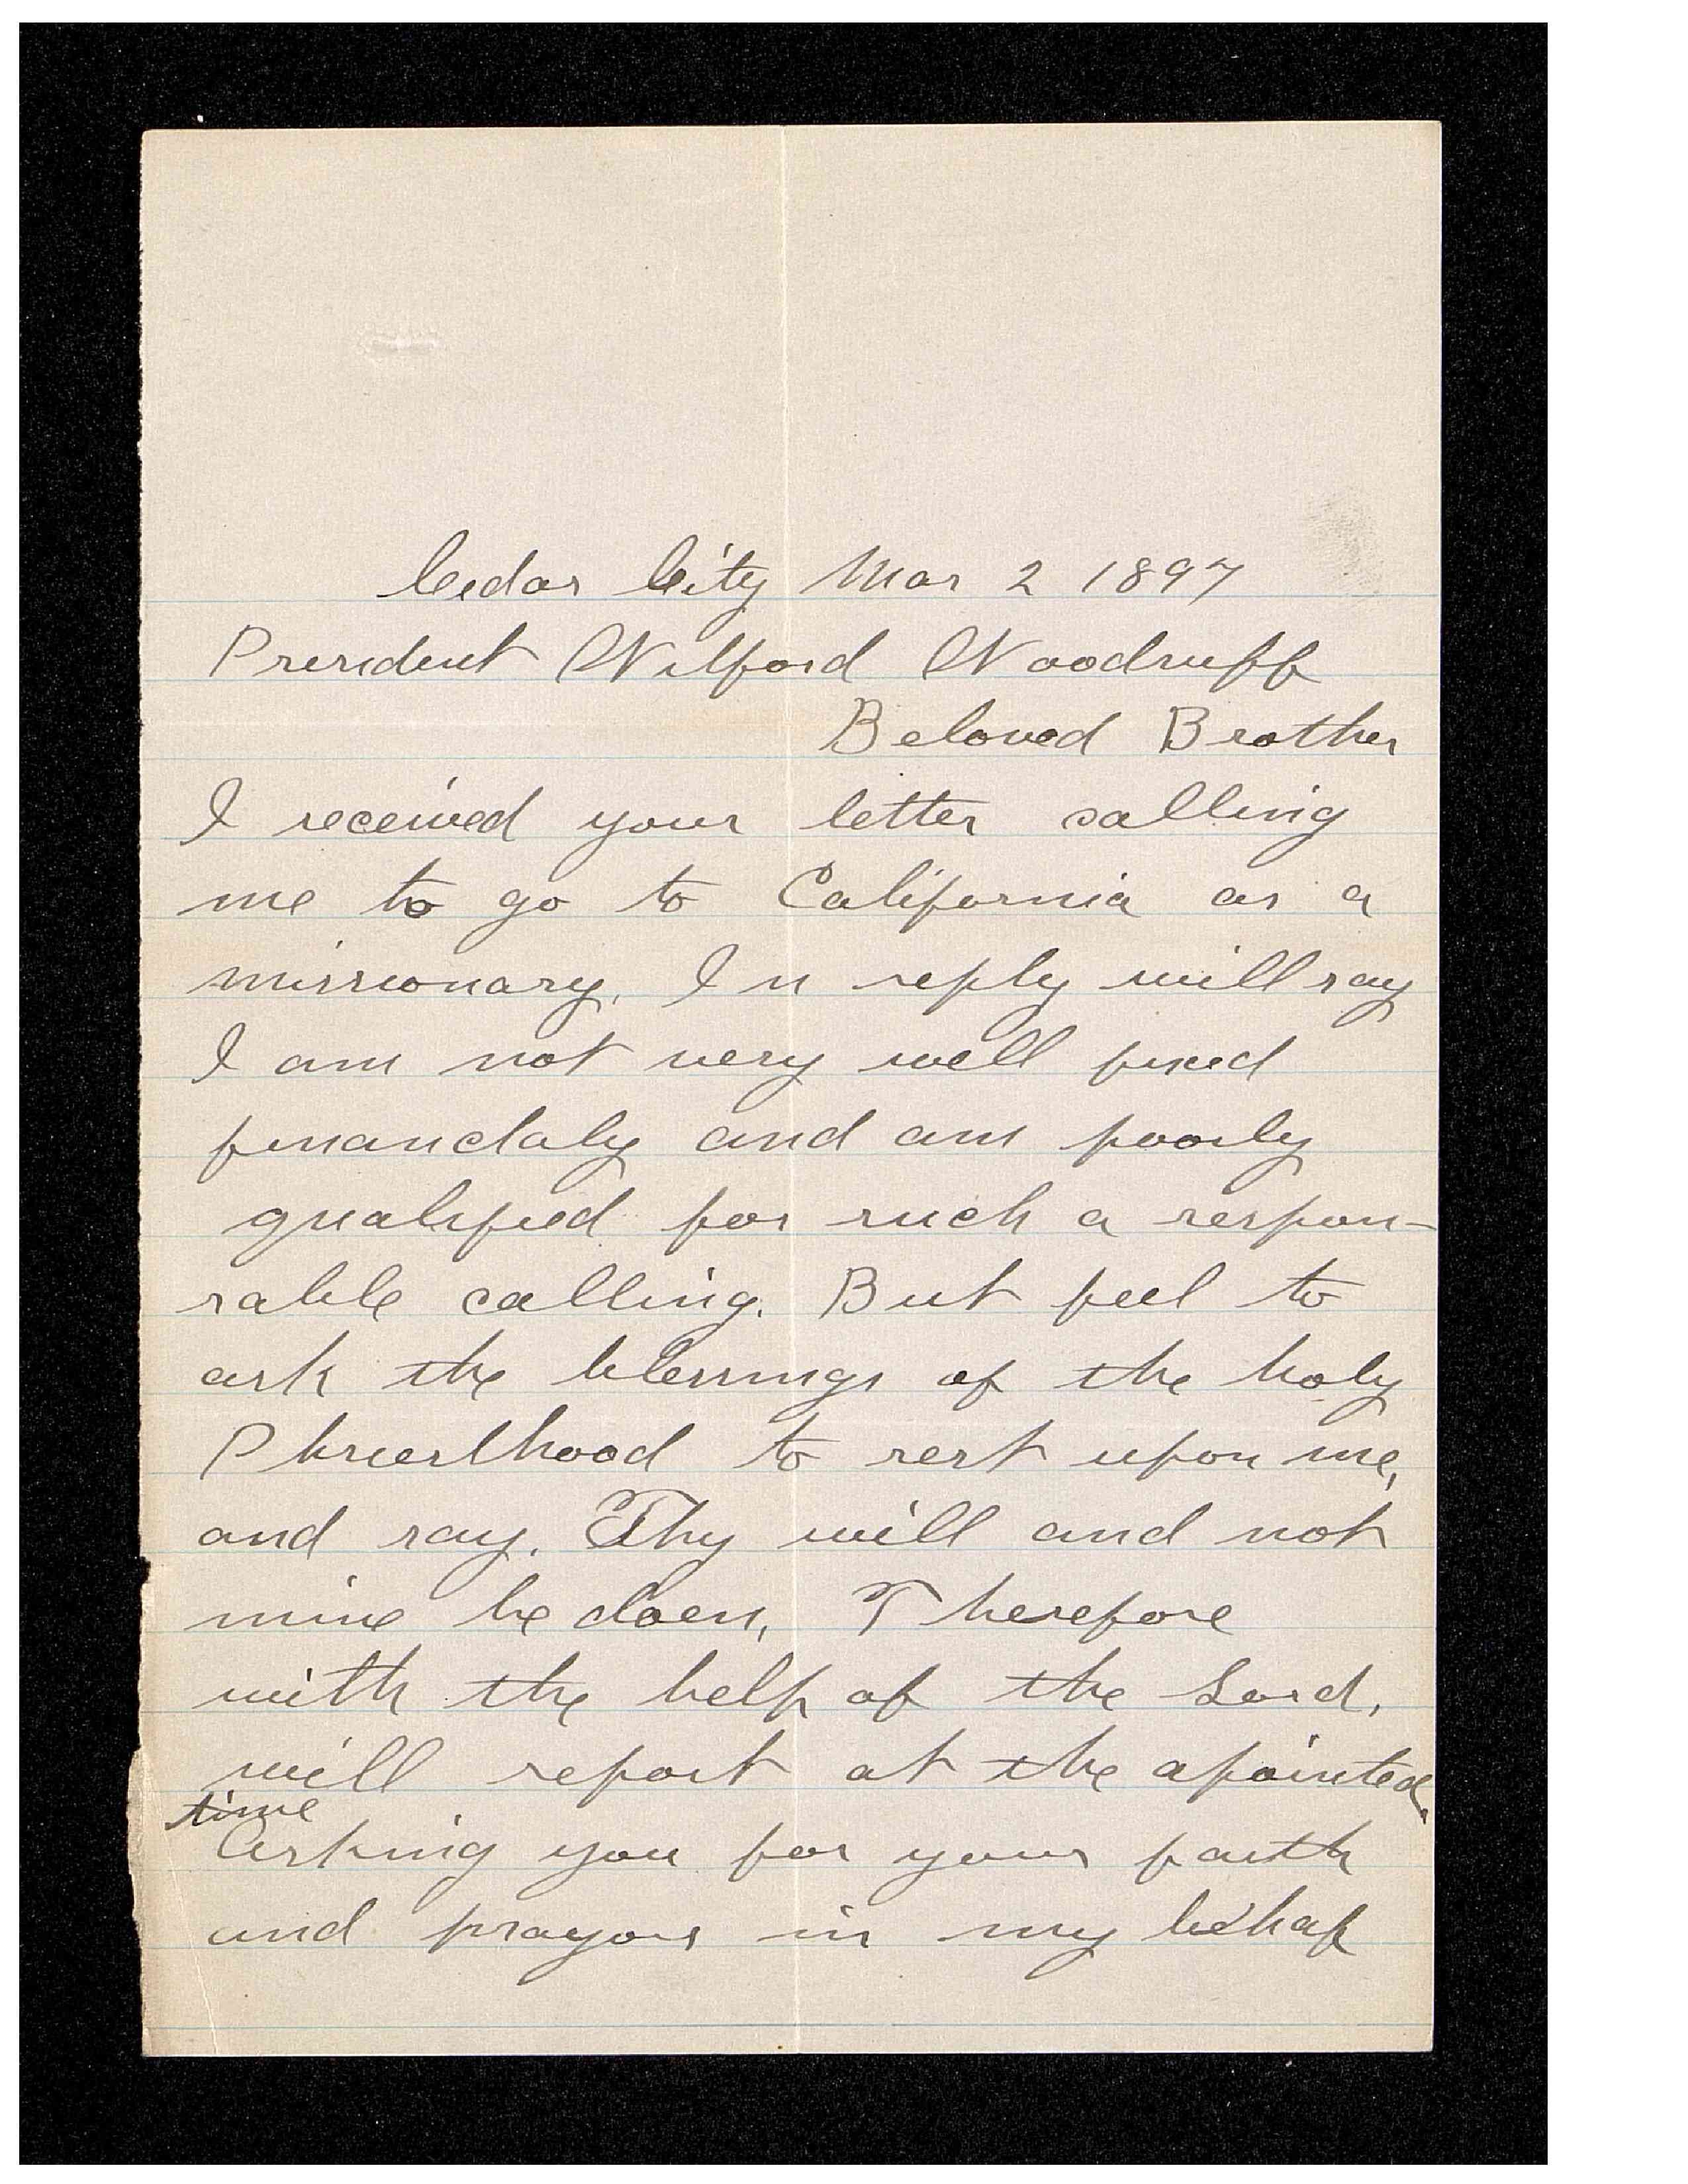 Cedar City Mar 2 1897
President Wilford Woodruff
Beloved Brother
I received your letter calling
me to go to California as a
missionary. In reply will say
I am not very well fixed
financialy and am poorly
qualified for such a respon-
sable calling. But feel to
ask the blessings of the holy
Phriesthood to rest upon me,
and say. Thy will and not
mine be doen, Therefore
with the help of the Lord,
will report at the apointed
time
Asking you for your faith
and prayors in my behaf